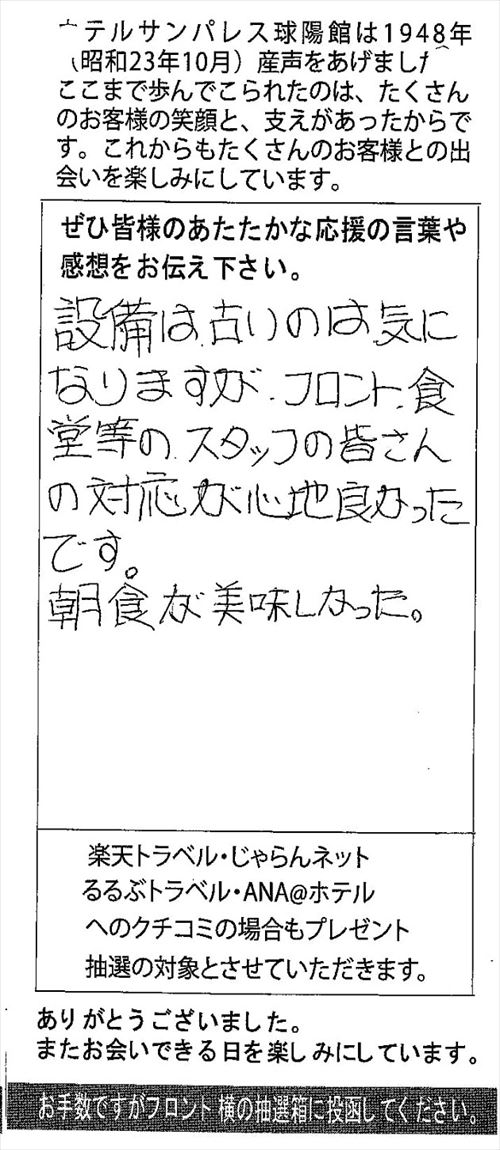 テルサンパレス球陽館は1948年
（昭和23年10月）産声をあげまし
ここまで歩んでこられたのは、たくさん
のお客様の笑顔と、支えがあったからで
す。これからもたくさんのお客様との出
会いを楽しみにしています。
ぜひ皆様のあたたかな応援の言葉や
感想をお伝え下さい。
設備は古いのは気に
なりますが、フロント、食
堂等の、スタッフの皆さん
の対応が心地良かった
です。
朝食が美味しかった。
楽天トラベル・じゃらんネット
るるぶトラベル・ANA@ホテル
へのクチコミの場合もプレゼント
抽選の対象とさせていただきます。
ありがとうございました。
またお会いできる日を楽しみにしています。
お手数ですがフロント横の抽選箱に投函してください。